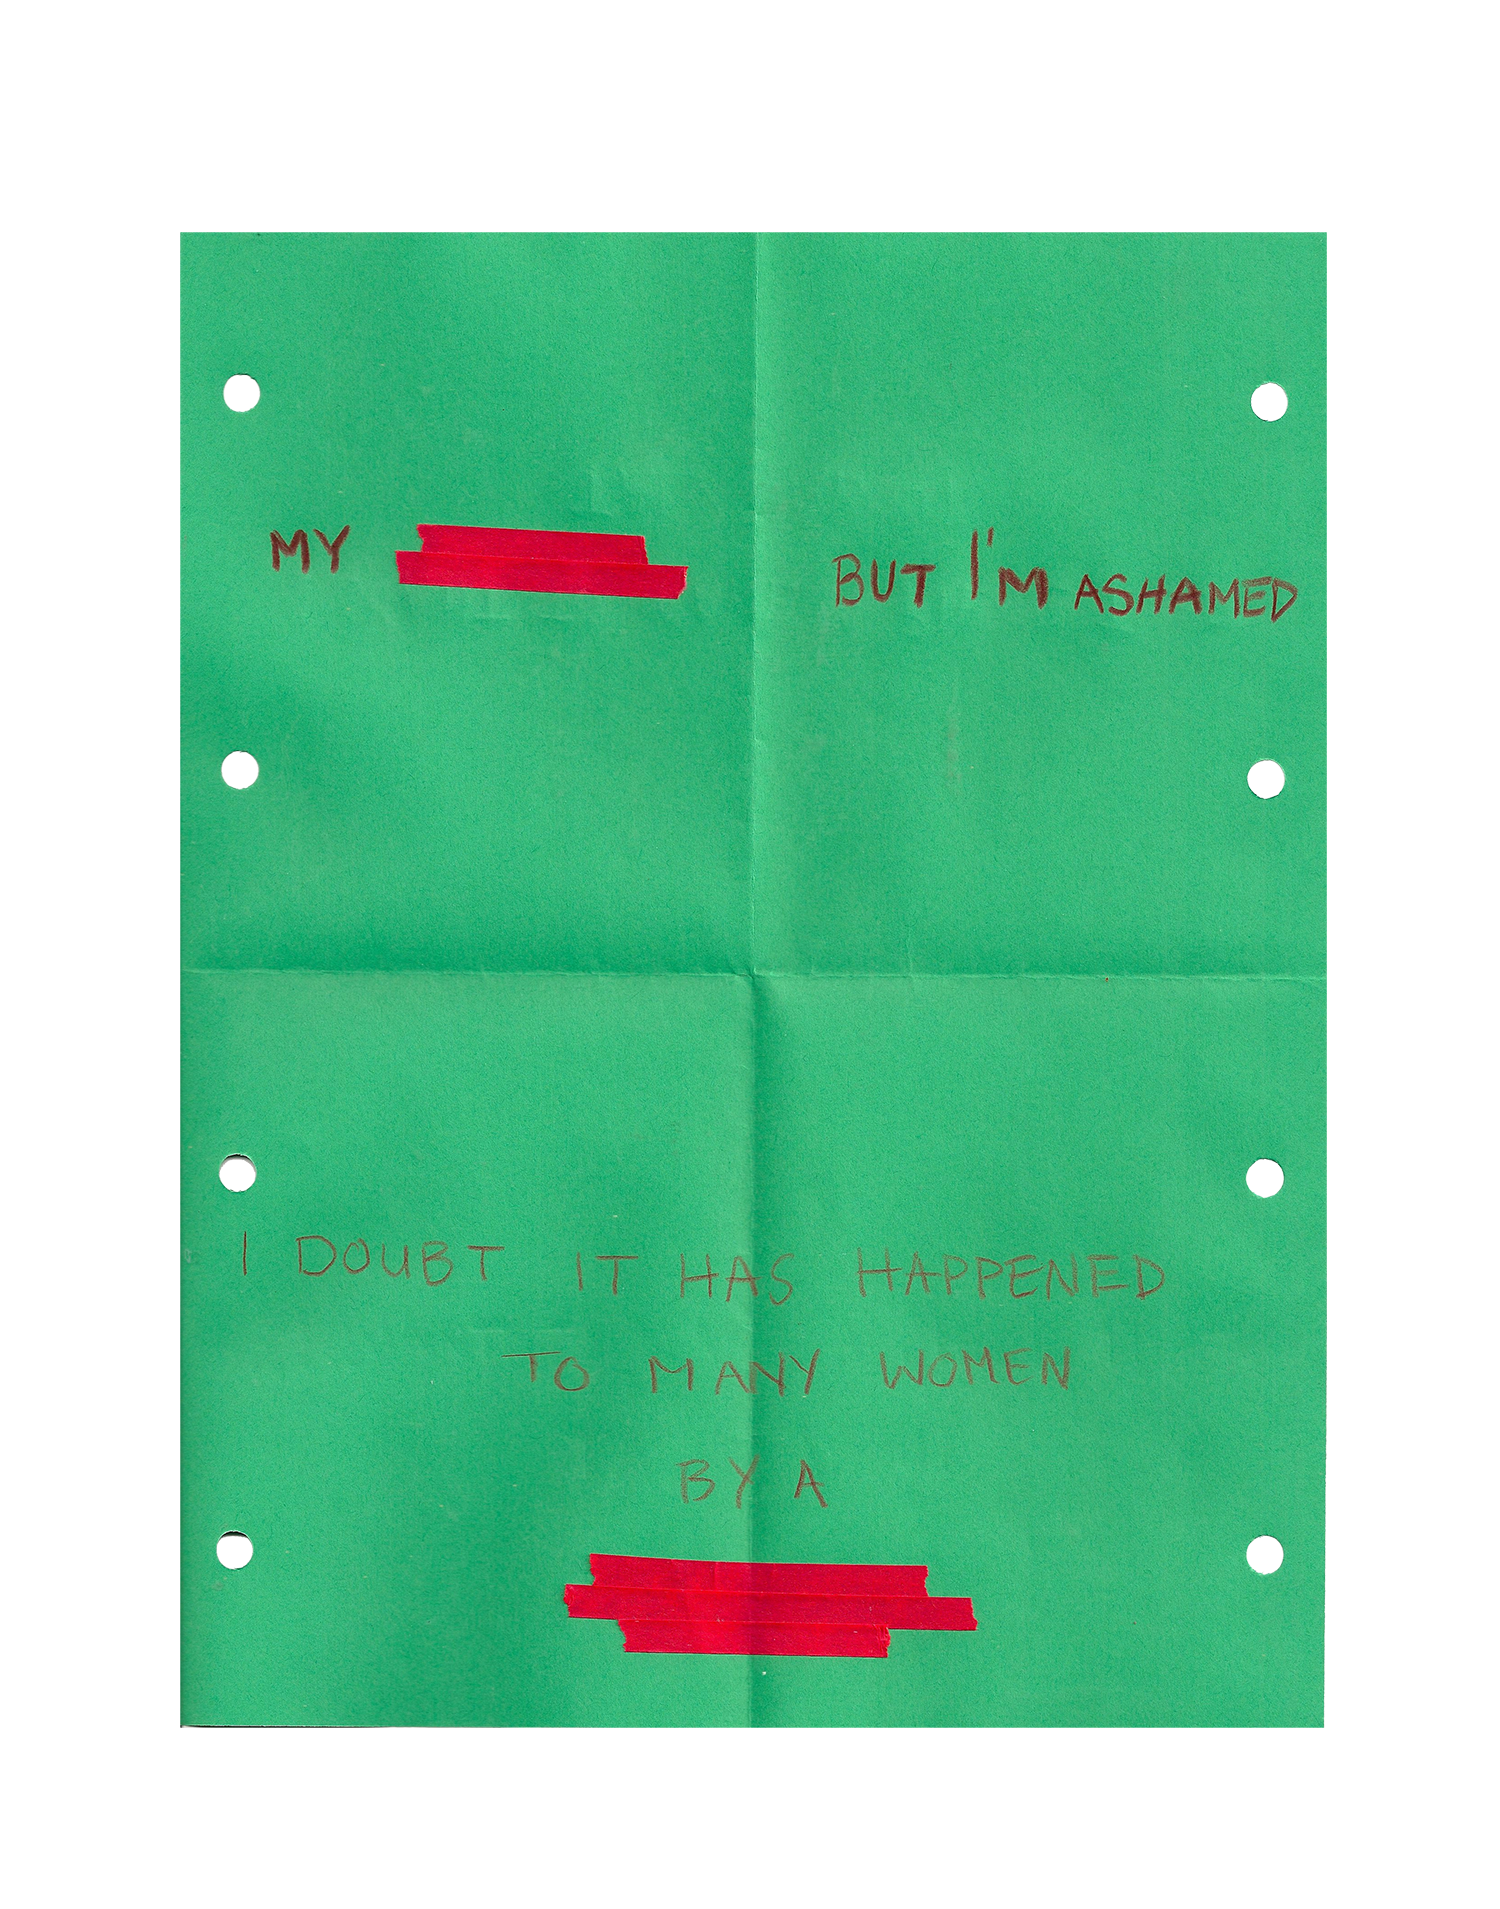 MY BUT I'M ASHAMED
I DOUBT IT HAS HAPPENED
TO MANY WOMEN
BY A